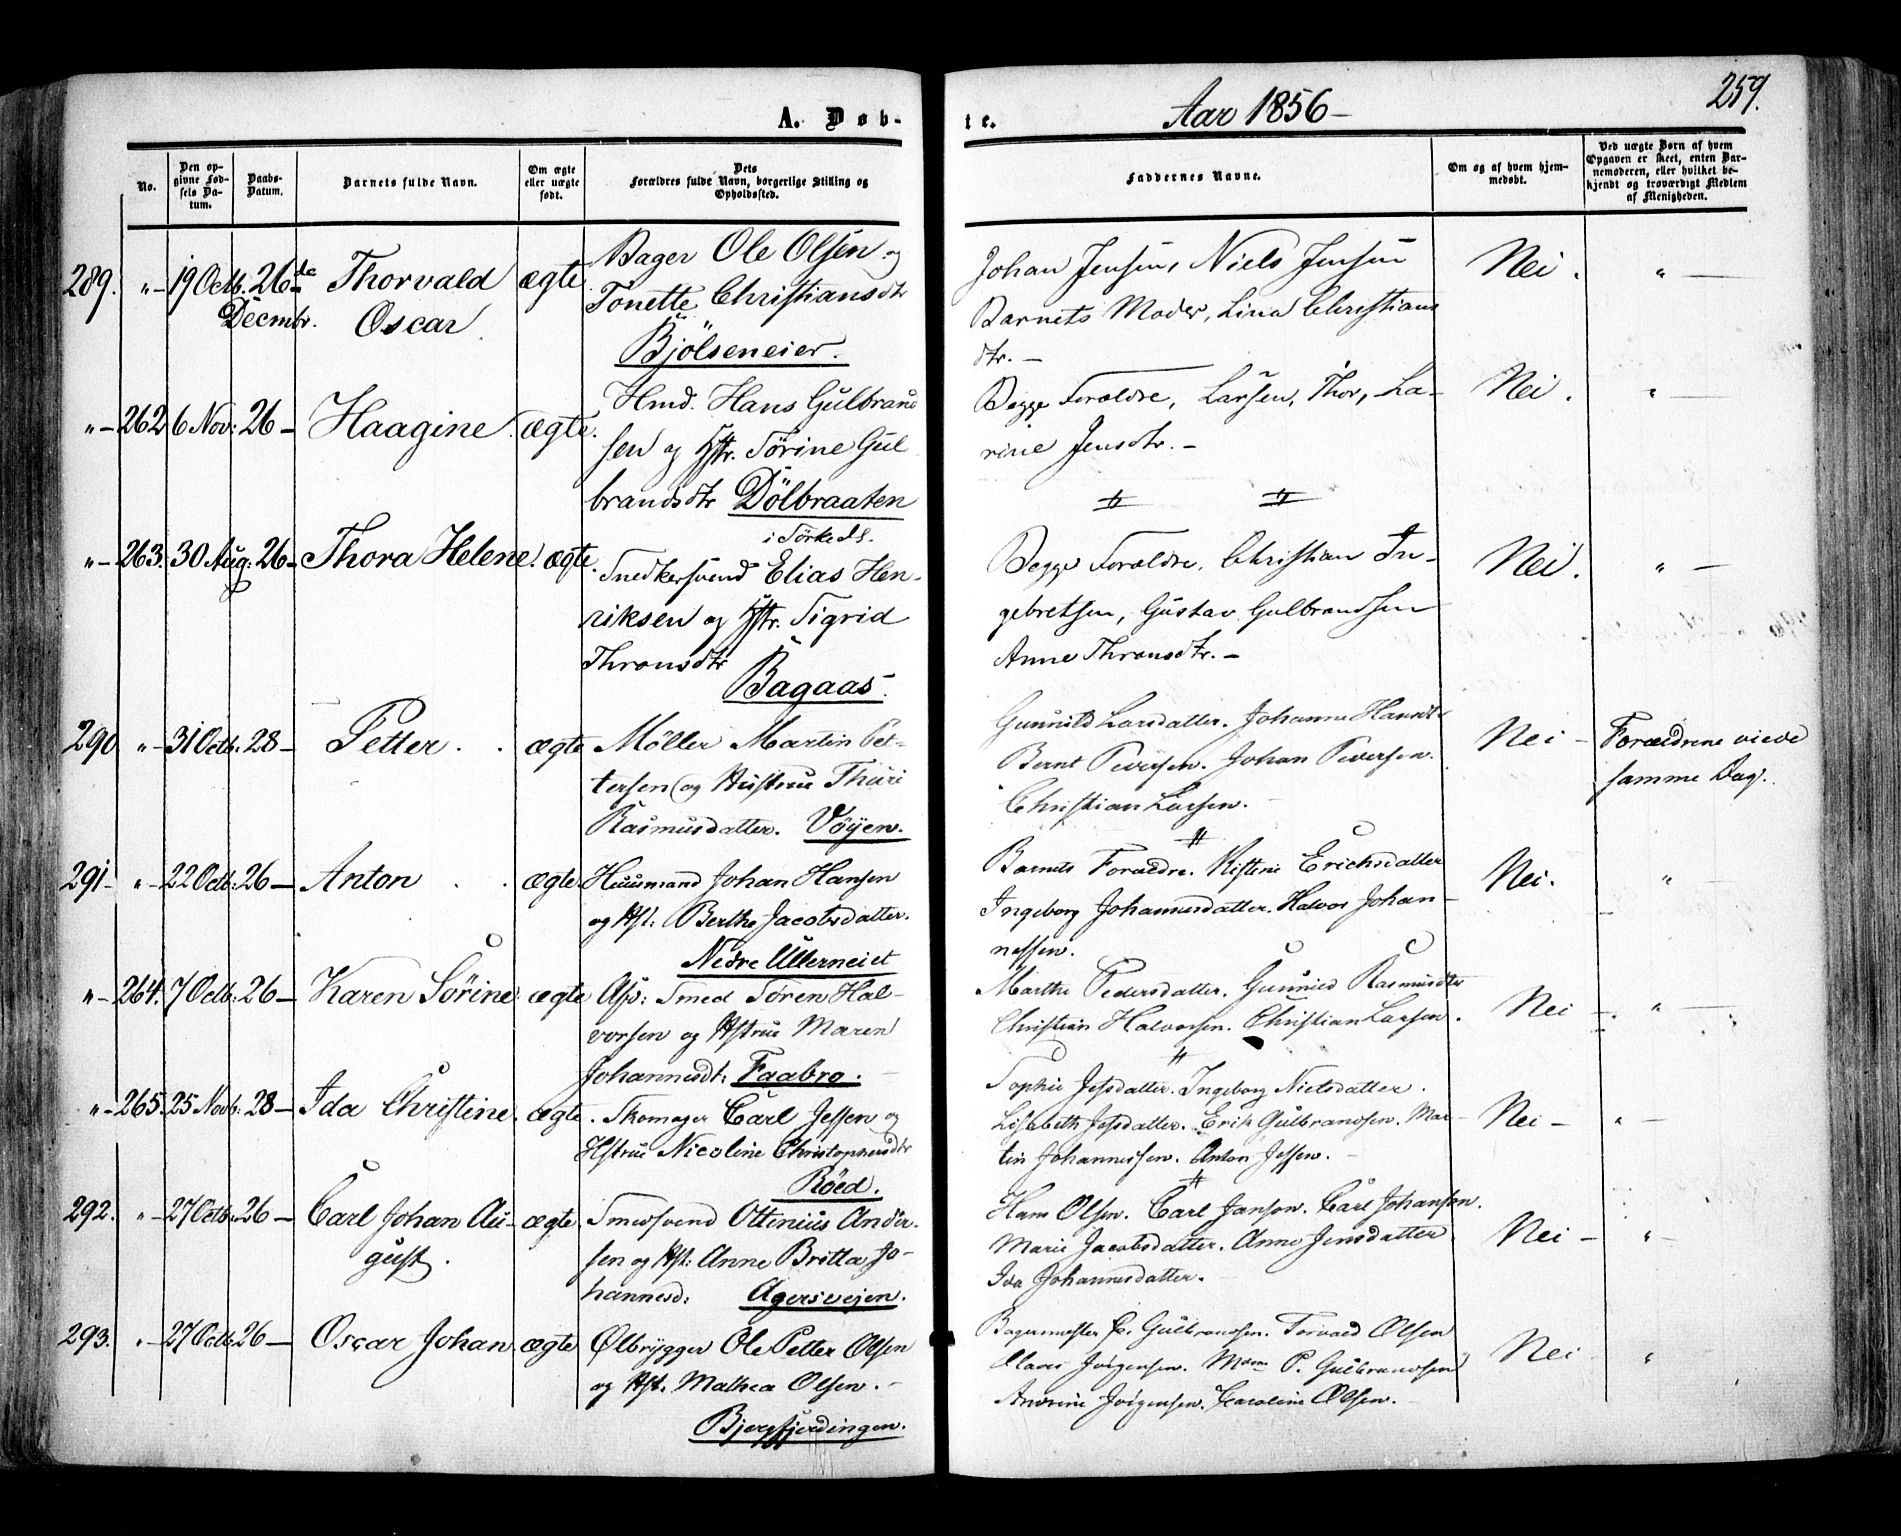 A. Døb-
te.
Aar 1856 –
259.
No.
Den op-
givne Fød-
sels Da-
tum.
Daabs-
Datum.
Barnets fulde Navn.
Om ægte
eller uægte
født.
Dets
Forældres fulde Navn, borgerlige Stilling og
Opholdssted.
Faddernes Navne.
Om og af hvem hjem-
medøbt.
Ved uægte Børn af hvem
Opgaven er skeet, enten Bar-
nemoderen, eller hvilket be-
kjendt og troværdigt Medlem
af Menigheden.
289. " – 19 Octb. 26de Decmbr. Thorvald Oscar ægte
Bager Ole Olsen og
Tonette Christiansdtr
Bjölseneier.
Johan Jensen, Niels Jensen
Barnets Moder, Lina Christians
dtr. –
Nei. " –
" – 262 6 Nov: 26 – Haagine ægte.
Hmd. Hans Gulbrand
sen og Hstr. Sörine Gul
brandsdtr Dölbraaten
i Sörkeds.
Begge Forældre, Larsen, Thor, La-
rine Jensdtr. –
Nei. " –
" – 263. 30 Aug: 26 – Thora Helene. ægte.
Snedkersvend Elias Hen-
riksen og Hstr. Sigrid
Thronsdtr
Bagaas.
Begge Forældre, Christian In-
gebretsen, Gustav Gulbrandsen
Anne Thronsdtr. –
Nei. " –
290 " – 31 Octb. 28 – Petter. ægte
Møller Martin Pet-
tersen og Hustrue Thuri
Rasmusdatter. Vøyen.
Gunnild Larsdatter. Johanne Hansdtr
Bernt Pedersen. Johan Pedersen.
Christian Larsen. –
Nei – Forældrene viede
samme Dag.
291 – " – 22 Octb: 26 – Anton ægte
Huusmand Johan Hansen
og Hst: Berthe Jacobsdatter.
Nedre Ullerneiet
Barnets Forældre. Kistine Erichsdatter
Ingeborg Johannesdatter. Halvor Johan-
nessen.
Nei. "
" – 264. 7 Octb: 26 – Karen Sörine. ægte
Ass: Smed Sören Hal-
vorsen og Hstrue Maren
Johannesdt: Faabro.
Marthe Pedersdatter. Gunnild Rasmusdtr
Christian Halvorsen. Christian Larsen.
Nei – "
" – 265. 25 Novb: 28 – Ida Christine. ægte.
Skomager Carl Jessen og
Hstrue Nicoline Christophersdtr
Röed.
Sophie Jessdatter. Ingeborg Nielsdatter.
Lisabeth Jessdatter. Erik Gulbrandsen. Mar-
tin Johannessen. Anton Jessen. –
Nei – " –
292. " – 27 Octb: 26 – Carl Johan Au-
gust. ægte
Smedsvend Ottinius Ander-
sen og Hst: Anne Britta Jo-
hannesd: Agersvejen.
Hans Olsen. Carl Janson. Carl Johanson.
Marie Jacobsdatter. Anne Jensdatter
Ida Johannesdatter. –
Nei – " –
293. " – 27 Octb 26 – Oscar Johan. ægte
Ølbrygger Ole Petter Olsen
og Hst. Mathea Olsen. –
Bjergfjerdingen.
Bagermester P. Gulbrandsen. Torvald Olsen
Claus Jörgensen. Mam P. Gulbrandsen
Andrine Jörgensen. Caroline Olsen. –
Nei "